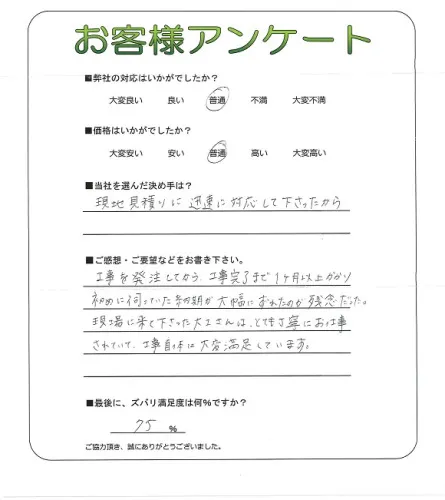 お客様アンケート
■弊社の対応はいかがでしたか?
大変良い 良い 普通 不満 大変不満
■価格はいかがでしたか?
大変安い 安い 普通 高い 大変高い
■当社を選んだ決め手は?
現地見積りに迅速に対応して下さったから
■ご感想・ご要望などをお書き下さい。
工事を発注してから、工事完了まで1ヶ月以上かかり
初めに伺っていた納期が大幅にずれたのが残念だった。
現場に来て下さった大工さんは、とても丁寧にお仕事
されていて、工事自体に大変満足しています。
■最後に、ズバリ満足度は何%ですか?
75 %
ご協力頂き、誠にありがとうございました。